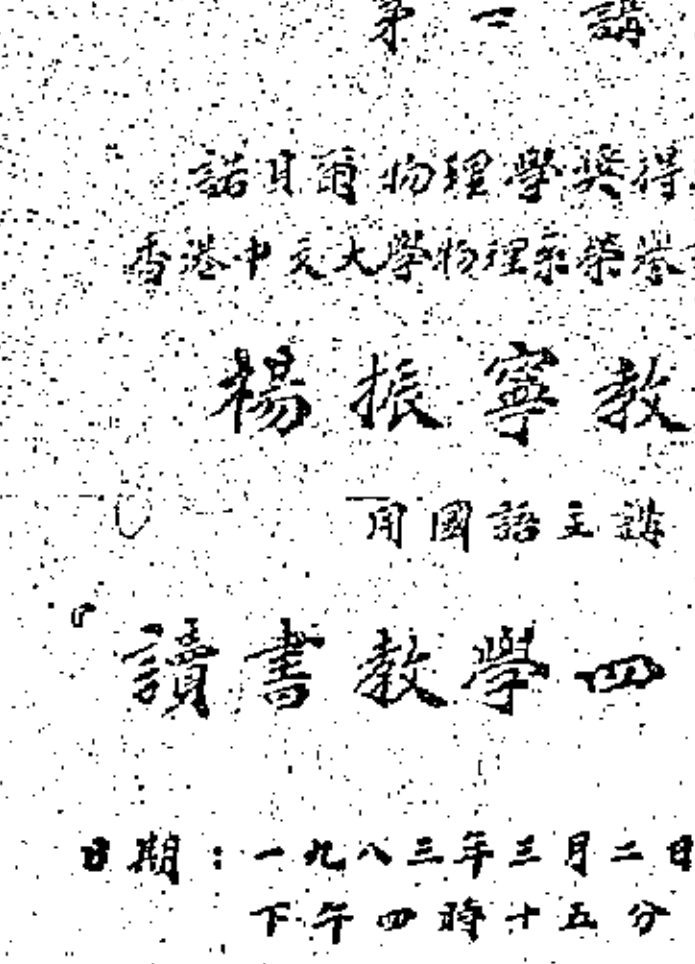 第一講
諾貝爾物理學獎得
香港中文大學物理系榮譽
楊振寧教
用國語主講
『讀書教學四
日期：一九八三年三月二日
下午四時十五分